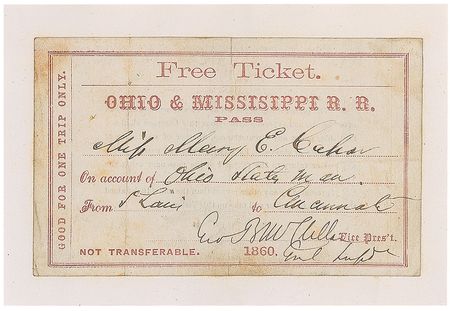 GOOD FOR ONE TRIP ONLY.
Free Ticket.
OHIO & MISSISIPPI R. R.
PASS
Miss Mary E.
On account of Ohio Statesman.
From St Louis to Cincinnati
Geo B McClellan Vice Pres't.
NOT TRANSFERABLE. 1860. Genl Supdt